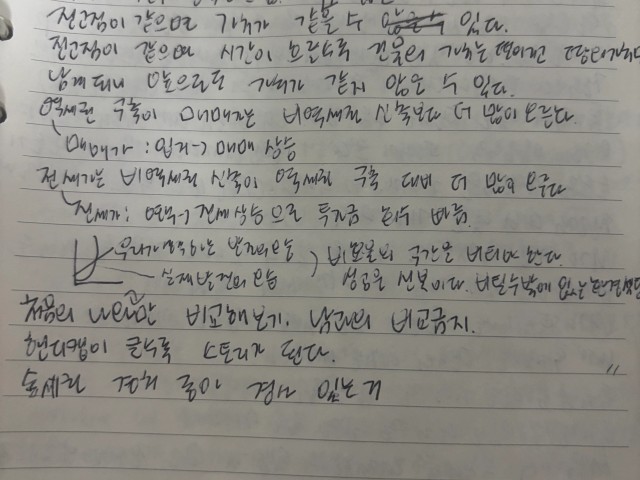 전고점이 같으면 가치가 같을 수 있다.
전고점이 같으며 시간이 흐를수록 건물의 가치는 떨어지고 땅의 가치만
남게 되니 앞으로도 가치가 같지 않을 수 있다.
역세권 구축이 매매가는 비역세권 신축보다 더 많이 오른다.
매매가 : 입지 → 매매 상승
전세가는 비역세권 신축이 역세권 구축 대비 더 많이 오른다
전세가 : 연식 → 전세상승으로 투자금 회수 빠름.
우리가 생각하는 발전의 모습
실제 발전의 모습
비포물의 구간을 버텨야 한다.
성공을 선불이다. 버틸수밖에 있는 환경
처음의 나와만 비교해보기. 남과의 비교금지.
핸디캡이 클수록 스토리가 된다.